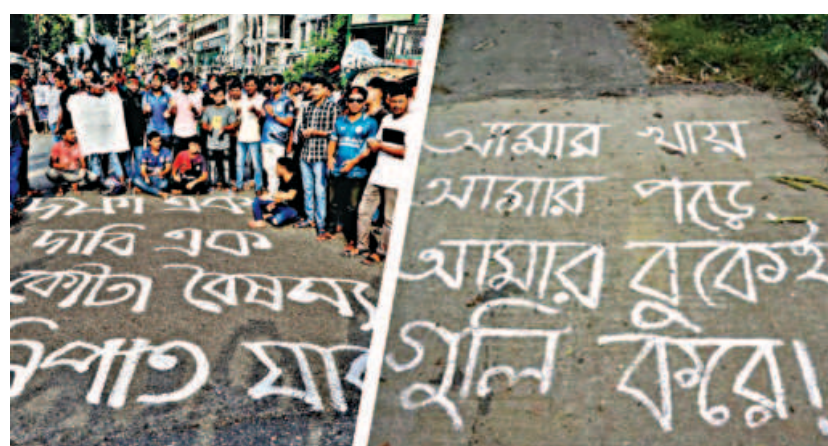 দফা এক
দাবি এক
কোটা বৈষম্য
নিপাত যাক
আমার খায়
আমার পড়ে
আমার বুকেই
গুলি করে।